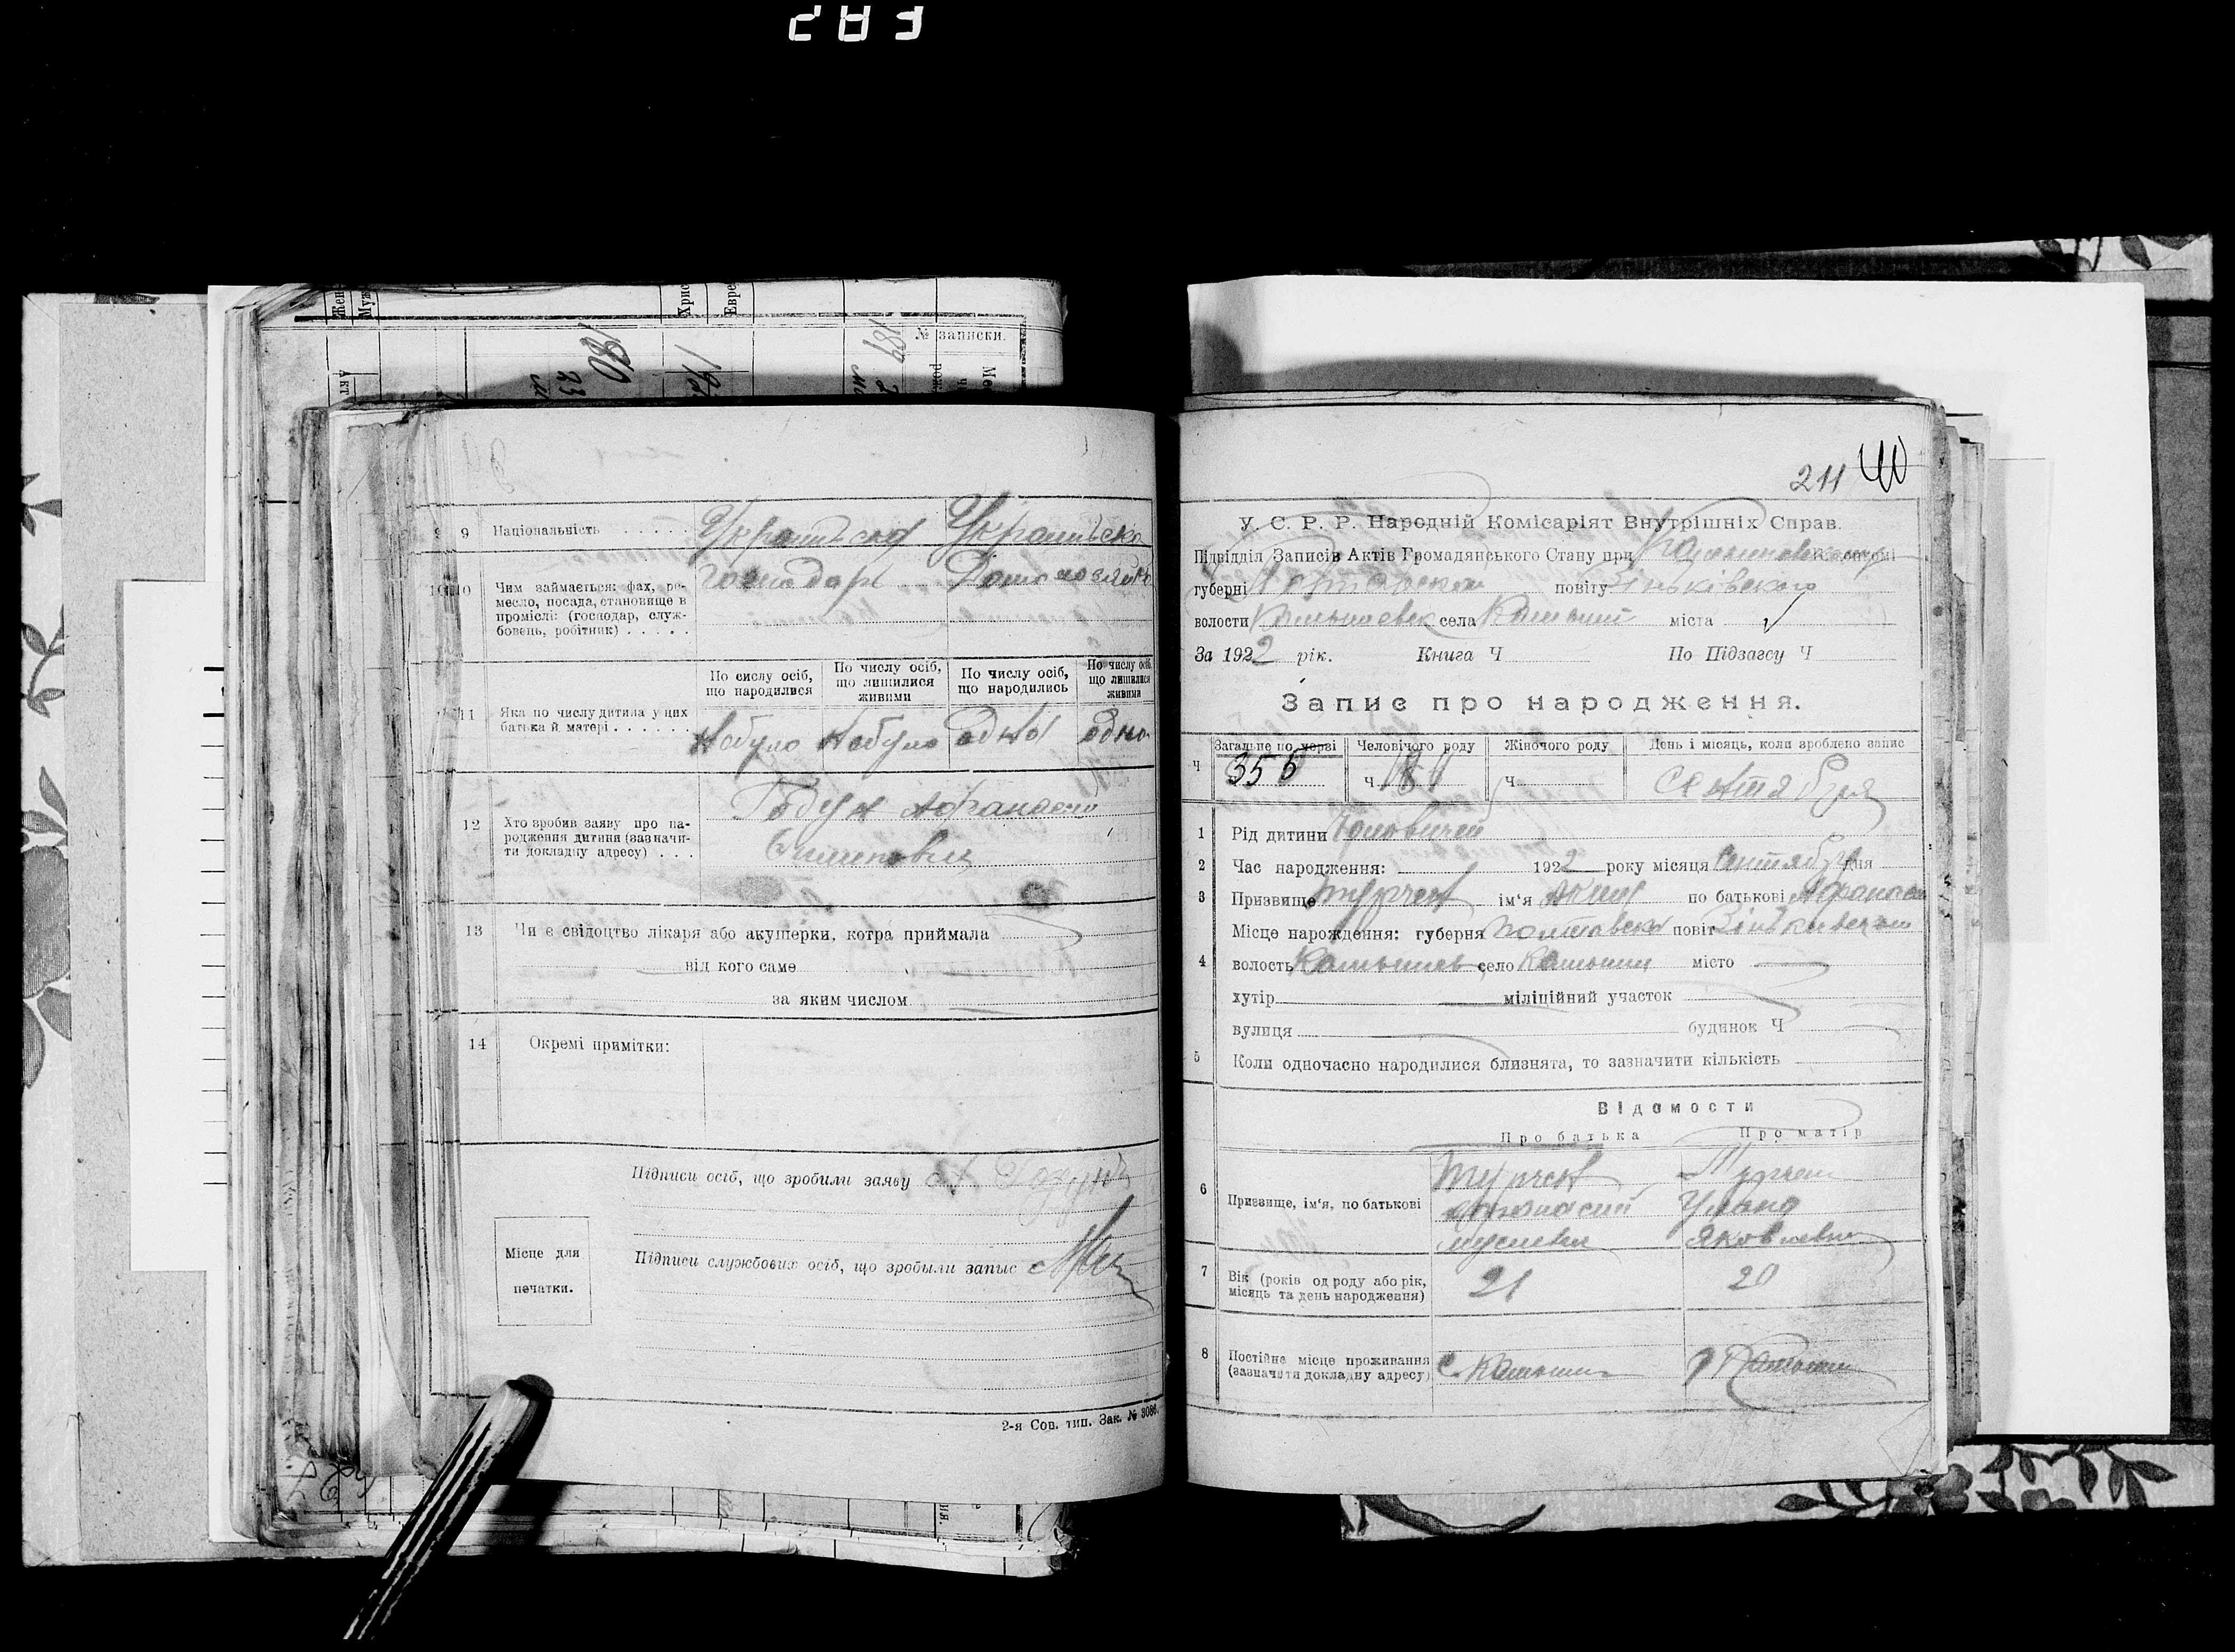 283
Жен
Муж
Хрис
Евре
№ записки.
189
190
23
АКТ
9 Національність . . . . . Українська Українська
10 Чим займається: фах, ре-
месло, посада, становище в
промислі: (господар, служ-
бовець, робітник) . . . . .
господарь Домохозяйка
По сислу осіб,
що народилися
По числу осіб,
що лишилися
живими
По числу осіб,
що народились
По числу осіб,
що лишилися
живими
11 Яка по числу дитина у цих
батька й матері . . . . . .
Небуло Небуло одна одна
12 Хто зробив заяву про на-
родження дитини (зазначи-
ти докладну адресу) . . .
Афанасий
13 Чи є свідоцтво лікаря або акушерки, котра приймала
від кого саме
за яким числом
14 Окремі примітки:
Підписи осіб, що зробили заяву
Місце для
печатки.
Підписи службових осіб, що зробыли запис
2-я Сов. тип. Зак. № 3086.
211 40
У. С. Р. Р. Народній Комісаріят Внутрішніх Справ.
Підвідділ Записів Актів Громадянського Стану при
губерні Полтавской повіту Зіньківського
волости села Камыши міста
За 1922 рік. Книга Ч По Підзагсу Ч
Запис про народження.
Загальне по черзі Человічого роду Жіночого роду День і місяць, коли зроблено запис
Ч 356 Ч 181 Ч Сентября
1 Рід дитини Чоловичей
2 Час народження: 1922 року місяця Сентября дня
3 Призвище Турчен ім'я по батькові Афанаси
Місце нарождення: губерня Полтавска повіт
4 волость Камышев село Камыши місто
хутір міліційний участок
вулиця будинок Ч
5 Коли одночасно народилися близнята, то зазначити кількість
Відомости
Про батька Про матір
6 Призвище, ім'я, по батькові
Турчен Турчен
Афанасий Уляна
Яковлевна
7 Вік (років од роду або рік,
місяць та день народження)
21 20
8 Постійне місце проживання
(зазначити докладну адресу)
с. Камыши Камыши